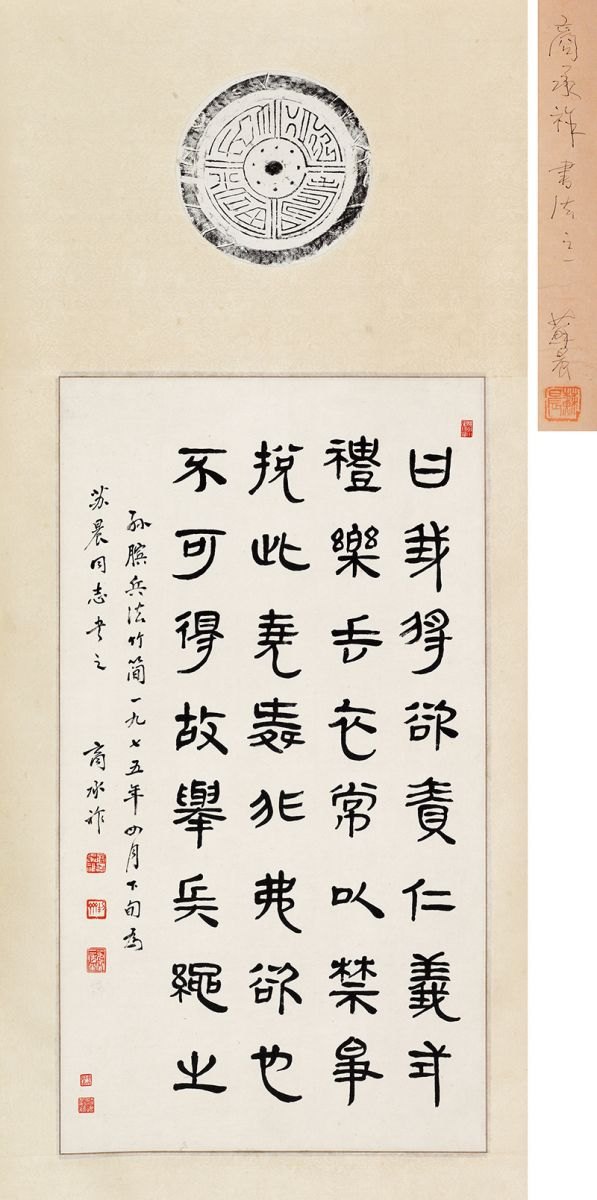 曰我將欲責仁義式
禮樂垂衣常以禁爭
捝此堯舜非弗欲也
不可得故舉兵繩之
孙臏兵法竹简一九七五年四月下旬為
苏晨同志书之 商承祚
商承祚書法之一 蘇晨